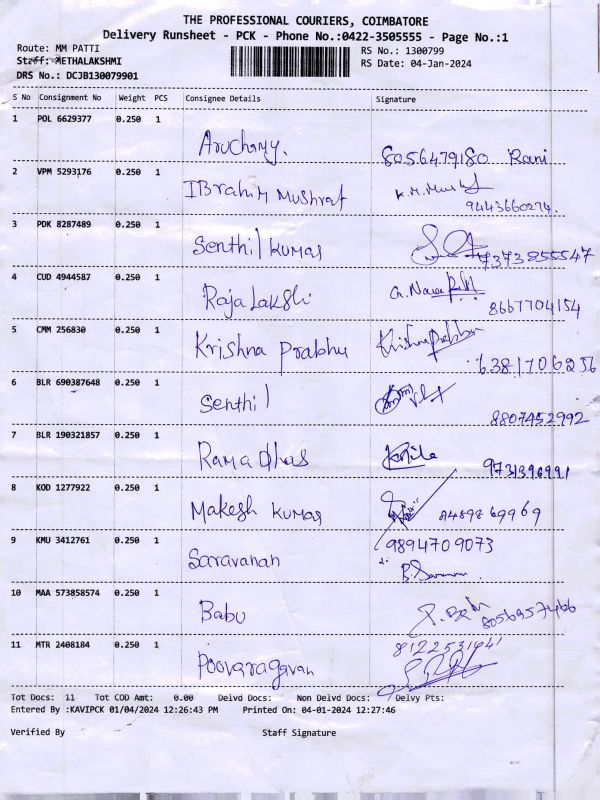 THE PROFESSIONAL COURIERS, COIMBATORE
Delivery Runsheet - PCK - Phone No.:0422-3505555 - Page No.:1
Route: MM PATTI RS No.: 1300799
Staff: METHALAKSHMI RS Date: 04-Jan-2024
DRS No.: DCJB130079901
S No Consignment No Weight PCS Consignee Details Signature
1 POL 6629377 0.250 1
Aruchamy. 8056479180 Rani
2 VPM 5293176 0.250 1
IBrahim Mushraf 9443660274.
3 PDK 8287489 0.250 1
Senthil Kumar 7373855547
4 CUD 4944587 0.250 1
Raja Lakshi 8667704154
5 CMM 256830 0.250 1
Krishna Prabhu Krishnaprabhu
6381706256
6 BLR 690387648 0.250 1
Senthil
8807452992
7 BLR 190321857 0.250 1
Rama dhas
8 KOD 1277922 0.250 1
Makesh Kumar
9 KMU 3412761 0.250 1 9894709073
Saravanan
10 MAA 573858574 0.250 1
Babu
11 MTR 2408184 0.250 1
Poovaragavan
Tot Docs: 11 Tot COD Amt: 0.00 Delvd Docs: Non Delvd Docs: Delvy Pts:
Entered By :KAVIPCK 01/04/2024 12:26:43 PM Printed On: 04-01-2024 12:27:46
Verified By Staff Signature